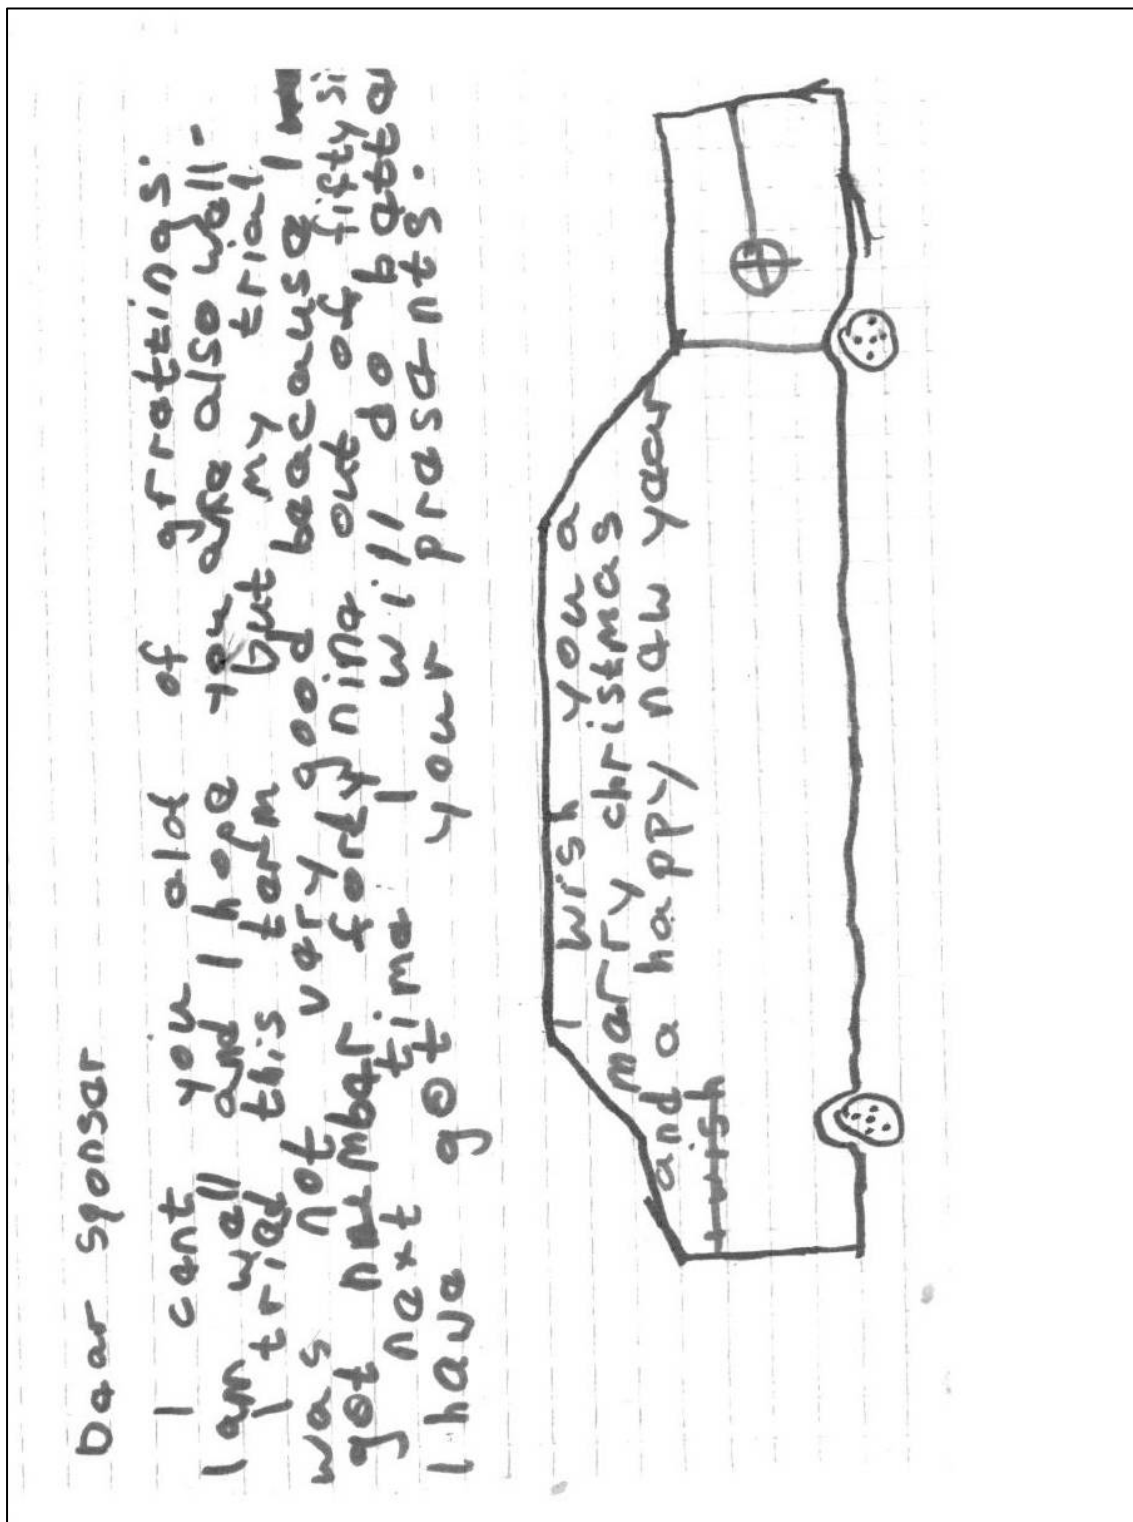 Dear sponser
I cent you alot of grretings.
I am well and I hope you are also well-
I tried this term but my trial
was not very good beacause I
got number fortynine out of fifty si
next time I will do bette
I have got your presents.
I wish you a
merry christmas
and a happy new year
I wish